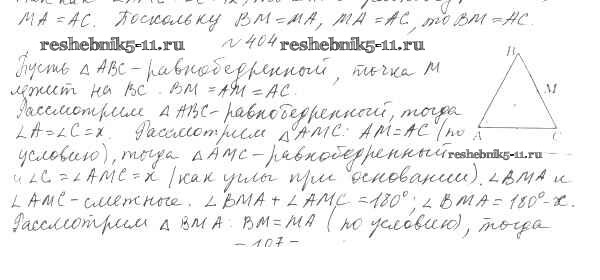 MA = AC. Поскольку BM = MA, MA = AC, то BM = AC.
reshebnik5-11.ru № 404 reshebnik5-11.ru
Пусть △ ABC - равнобедренный, точка M
лежит на BC. BM = AM = AC.
Рассмотрим △ ABC - равнобедренный, тогда
∠A = ∠C = x. Рассмотрим △ AMC: AM = AC (по
условию), тогда △ AMC - равнобедренный reshebnik5-11.ru
и ∠C = ∠AMC = x (как углы при основании). ∠BMA и
∠AMC - смежные. ∠BMA + ∠AMC = 180°; ∠BMA = 180° - x.
Рассмотрим △ BMA: BM = MA (по условию), тогда
- 107 -
B
M
A C